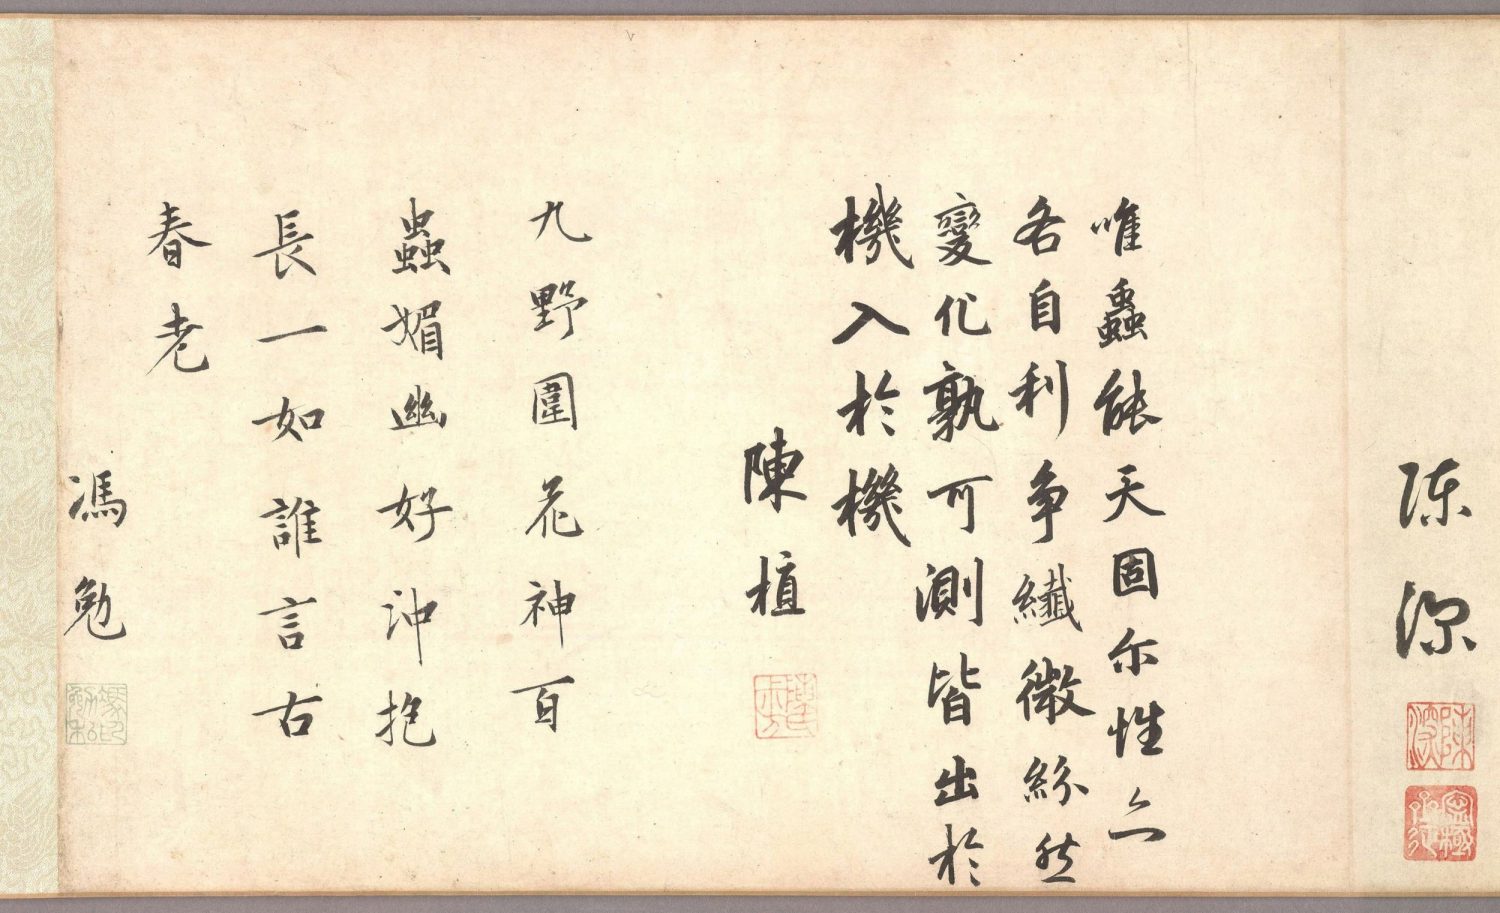 陈深
陳深
唯蟲能天固尔性亦
各自利爭纖微紛然
變化孰可測皆出於
機入於機
陳植
九野圍花神百
蟲媚幽好沖抱
長一如誰言古
春老
馮勉